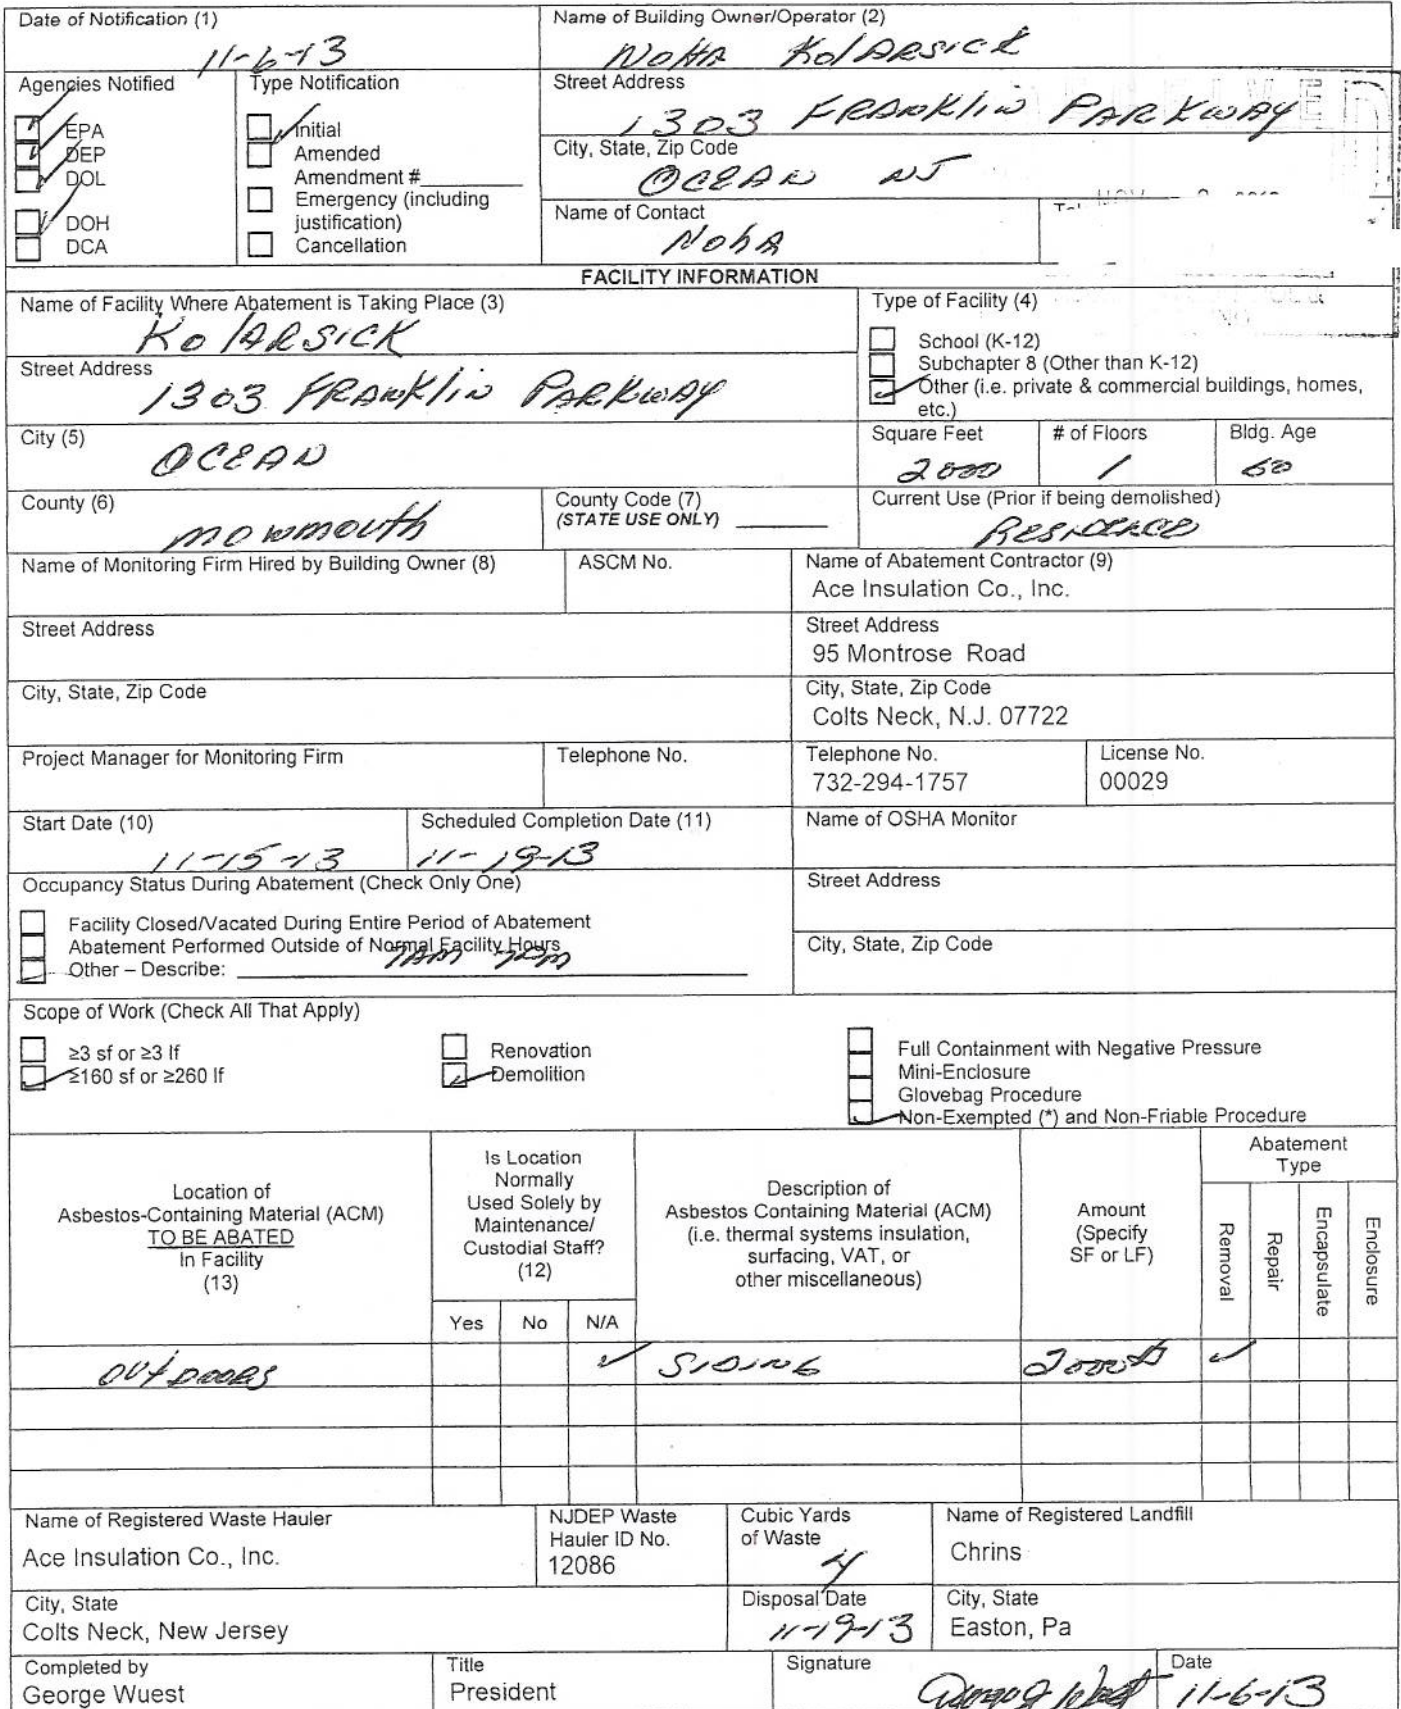 Date of Notification (1)
11-6-13
Name of Building Owner/Operator (2)
NOHA KolARSICK
Agencies Notified
EPA
DEP
DOL
DOH
DCA
Type Notification
Initial
Amended
Amendment #
Emergency (including
justification)
Cancellation
Street Address
1303 FRANKlin PARKWAY
City, State, Zip Code
OCEAN NJ
Name of Contact
NohA
FACILITY INFORMATION
Name of Facility Where Abatement is Taking Place (3)
KolARSICK
Type of Facility (4)
School (K-12)
Subchapter 8 (Other than K-12)
Other (i.e. private & commercial buildings, homes,
etc.)
Street Address
1303 FRANKlin PARKWAY
City (5)
OCEAN
Square Feet
2000
# of Floors
1
Bldg. Age
60
County (6)
MONMOUTH
County Code (7)
(STATE USE ONLY)
Current Use (Prior if being demolished)
RESIDENCE
Name of Monitoring Firm Hired by Building Owner (8)
ASCM No.
Name of Abatement Contractor (9)
Ace Insulation Co., Inc.
Street Address
Street Address
95 Montrose Road
City, State, Zip Code
City, State, Zip Code
Colts Neck, N.J. 07722
Project Manager for Monitoring Firm
Telephone No.
Telephone No.
732-294-1757
License No.
00029
Start Date (10)
11-15-13
Scheduled Completion Date (11)
11-19-13
Name of OSHA Monitor
Occupancy Status During Abatement (Check Only One)
Facility Closed/Vacated During Entire Period of Abatement
Abatement Performed Outside of Normal Facility Hours
Other – Describe: 7AM 7PM
Street Address
City, State, Zip Code
Scope of Work (Check All That Apply)
≥3 sf or ≥3 lf
≥160 sf or ≥260 lf
Renovation
Demolition
Full Containment with Negative Pressure
Mini-Enclosure
Glovebag Procedure
Non-Exempted (*) and Non-Friable Procedure
Location of
Asbestos-Containing Material (ACM)
TO BE ABATED
In Facility
(13)
Is Location
Normally
Used Solely by
Maintenance/
Custodial Staff?
(12)
Yes No N/A
Description of
Asbestos Containing Material (ACM)
(i.e. thermal systems insulation,
surfacing, VAT, or
other miscellaneous)
Amount
(Specify
SF or LF)
Abatement
Type
Removal
Repair
Encapsulate
Enclosure
OUTDOORS ✓ SIDING 2000 ✓
Name of Registered Waste Hauler
Ace Insulation Co., Inc.
NJDEP Waste
Hauler ID No.
12086
Cubic Yards
of Waste
4
Name of Registered Landfill
Chrins
City, State
Colts Neck, New Jersey
Disposal Date
11-19-13
City, State
Easton, Pa
Completed by
George Wuest
Title
President
Signature
George Wuest
Date
11-6-13